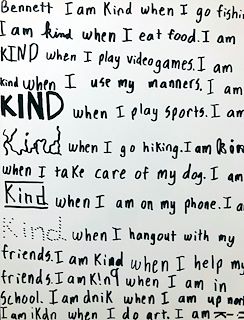 Bennett I am Kind when I go fishi
I am kind when I eat food. I am
KIND when I play videogames. I am
kind when I use my manners. I am
KIND when I play sports. I am
Kind when I go hiking. I am kin
when I take care of my dog. I am
Kind when I am on my phone. I a
Kind when I hangout with my
friends. I am Kind when I help my
friends. I am K!nd when I am in
School. I am dnik when I am up nort
I am iKdn when I do art. I am